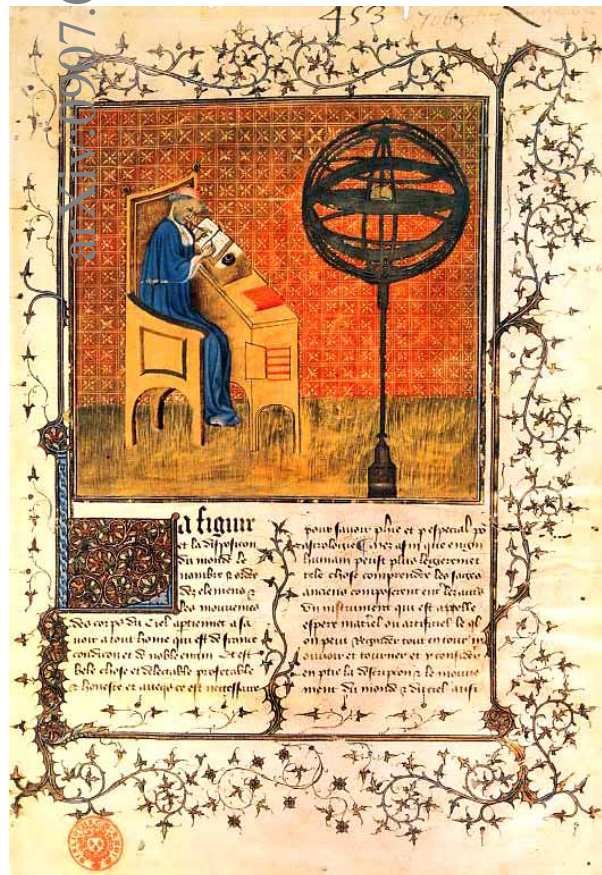 453 7065
arXiv:0907.
la figure
et la disposicion
du monde le
nombre & ordre
des elemens &
les mouvemens
des corps du Ciel aptienent a sa
voir a tout home qui est de france
condicion et de noble engin Et est
bele chose et delectable profetable
& honeste et avec ce est necessaire
pour savoir et p especial
astrologie Car afin que engin
humain peust plus legerement
tele chose comprendre les sages
anciens composerent
un instrument qui est appelle
espere materiel ou artificiel le ql
on peut Regarder tout entour
mouvoir et tourner et y considerer
en ptie la descripcion & le mouve
ment du monde & du ciel aussi